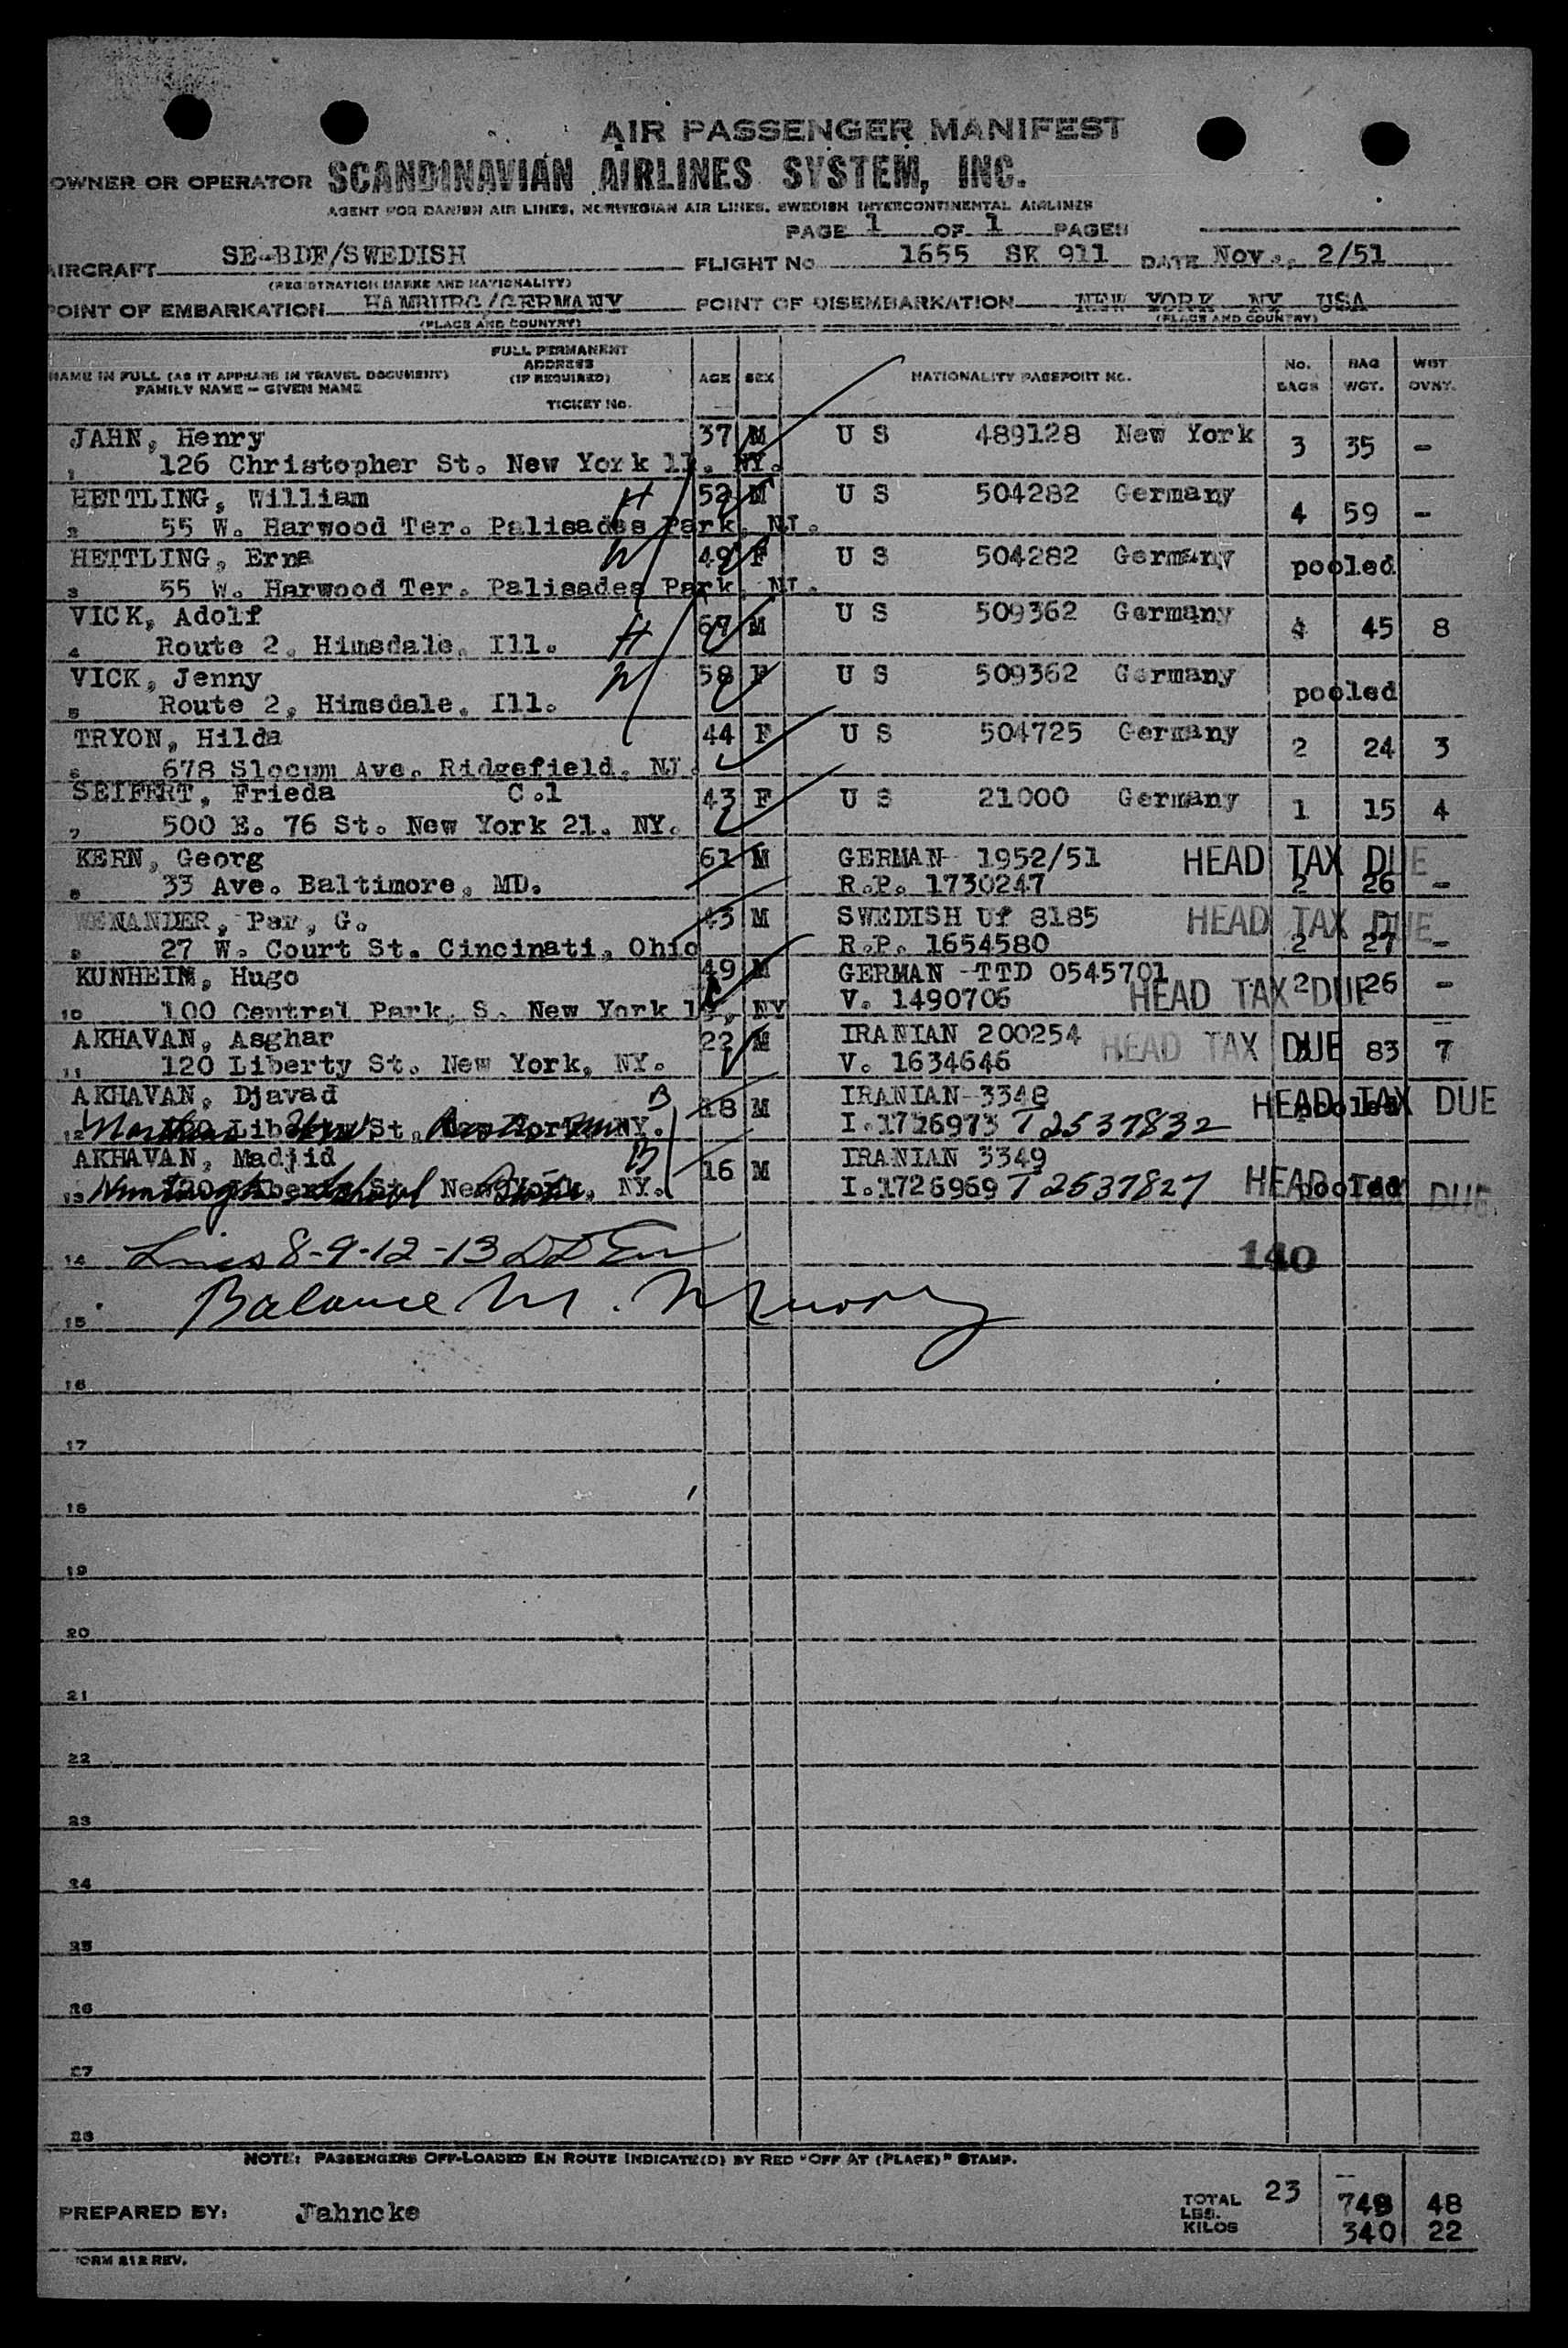 AIR PASSENGER MANIFEST
OWNER OR OPERATOR SCANDINAVIAN AIRLINES SYSTEM, INC.
AGENT FOR DANISH AIR LINES, NORWEGIAN AIR LINES, SWEDISH INTERCONTINENTAL AIRLINES
PAGE 1 OF 1 PAGES
AIRCRAFT SE-BDF/SWEDISH FLIGHT No 1655 SK 911 DATE Nov., 2/51
(REGISTRATION MARKS AND NATIONALITY)
POINT OF EMBARKATION HAMBURG/GERMANY POINT OF DISEMBARKATION NEW YORK NY USA
(PLACE AND COUNTRY) (PLACE AND COUNTRY)
NAME IN FULL (AS IT APPEARS IN TRAVEL DOCUMENT) FAMILY NAME - GIVEN NAME FULL PERMANENT ADDRESS (IF REQUIRED) TICKET No. AGE SEX NATIONALITY PASSPORT No. No. BAGS BAG WGT. WGT OVWT.
JAHN, Henry 37 M U S 489128 New York 3 35 -
1 126 Christopher St. New York 11. NY.
HETTLING, William H 52 M U S 504282 Germany 4 59 -
2 55 W. Harwood Ter. Palisades Park, NJ.
HETTLING, Erna W 49 F U S 504282 Germany pooled
3 55 W. Harwood Ter. Palisades Park, NJ.
VICK, Adolf 67 M U S 509362 Germany 4 45 8
4 Route 2, Himsdale, Ill. H
VICK, Jenny W 58 F U S 509362 Germany pooled
5 Route 2, Himsdale, Ill.
TRYON, Hilda 44 F U S 504725 Germany 2 24 3
6 678 Slocum Ave. Ridgefield, NJ.
SEIFERT, Frieda C.l 43 F U S 21000 Germany 1 15 4
7 500 E. 76 St. New York 21. NY.
KERN, Georg 61 M GERMAN 1952/51 HEAD TAX DUE
8 33 Ave. Baltimore, MD. R.P. 1730247 2 26 -
WENANDER, Par, G. 43 M SWEDISH Uf 8185 HEAD TAX DUE
9 27 W. Court St. Cincinati, Ohio R.P. 1654580 2 27 -
KUNHEIM, Hugo 49 M GERMAN -TTD 0545701 2 26 -
10 100 Central Park, S. New York 19, NY V. 1490706 HEAD TAX DUE
AKHAVAN, Asghar 22 M IRANIAN 200254 HEAD TAX DUE 83 7
11 120 Liberty St. New York, NY. V. 1634646
AKHAVAN, Djavad B 18 M IRANIAN-3348 HEAD TAX DUE pooled
12 120 Liberty St. New York, NY. I.1726973 T2537832
AKHAVAN, Madjid B 16 M IRANIAN 3349
13 120 Liberty St. New York, NY. I.1726969 T2537827 HEAD TAX DUE pooled
14 Lines 8-9-12-13 140
15 Balance M.
16
17
18
19
20
21
22
23
24
25
26
27
28
NOTE: PASSENGERS OFF-LOADED EN ROUTE INDICATE(D) BY RED "OFF AT (PLACE)" STAMP.
PREPARED BY: Jahncke TOTAL 23
LBS. 749 48
KILOS 340 22
FORM 212 REV.